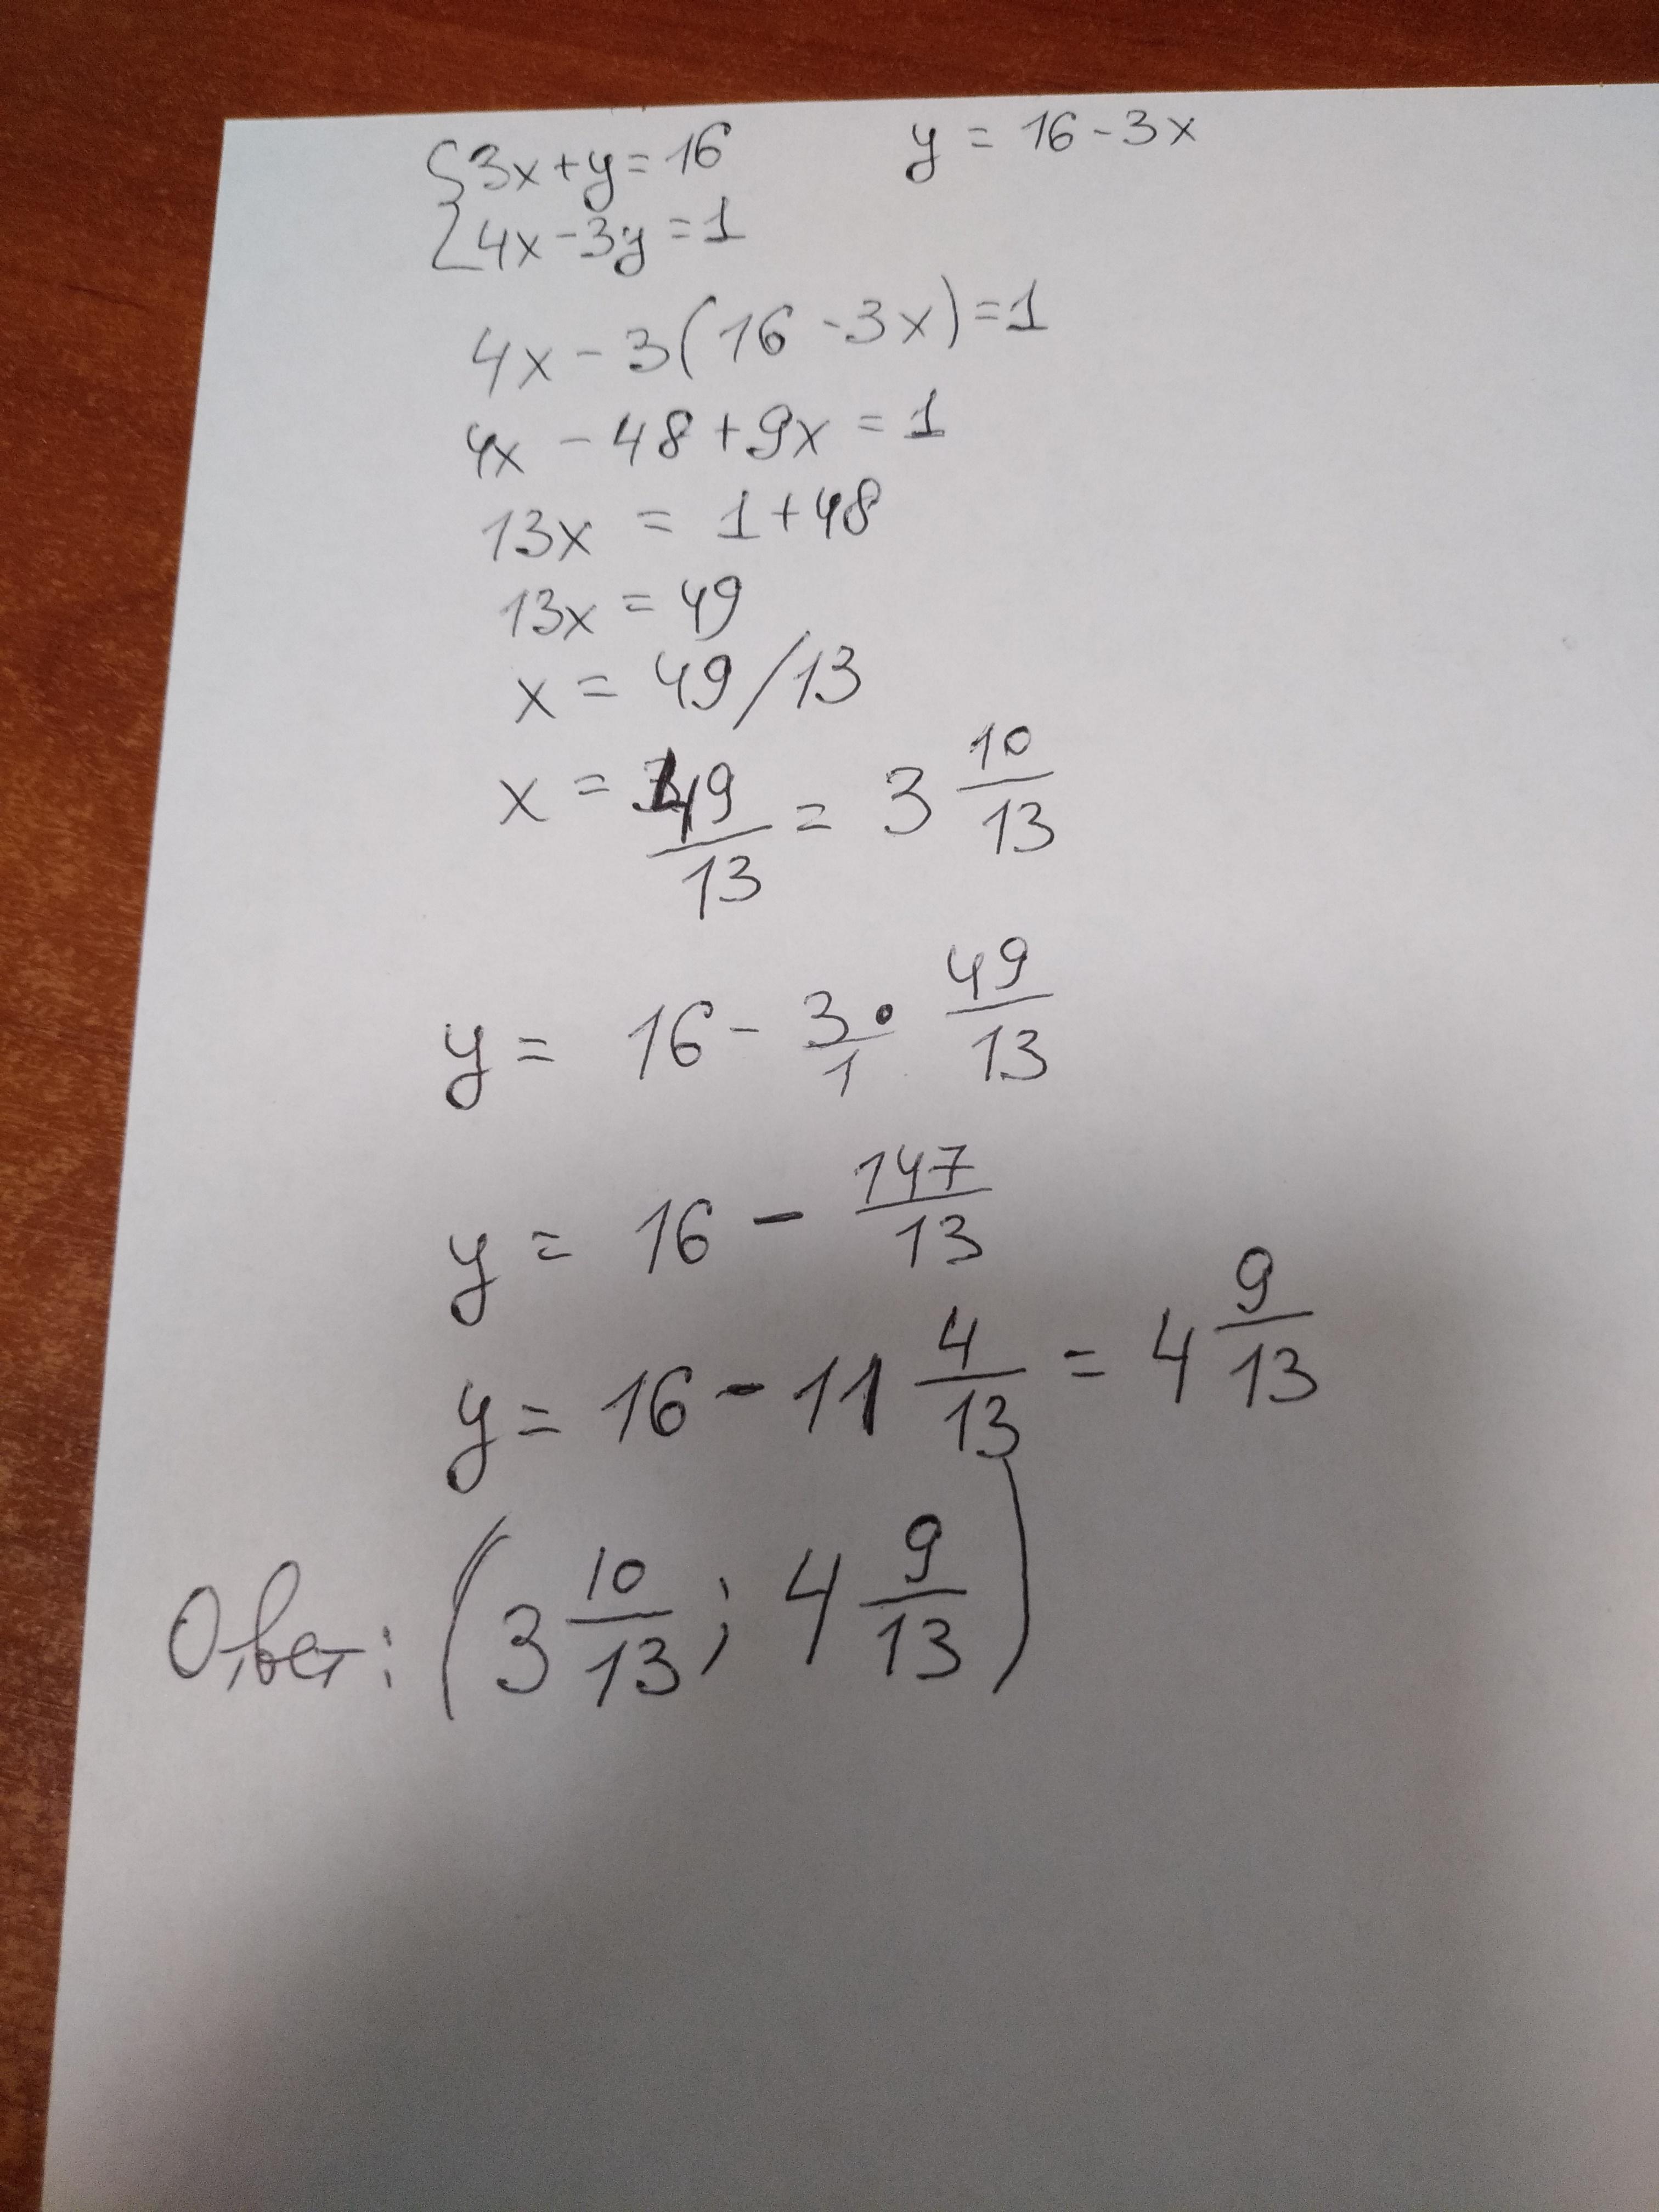 {3x+y=16 y = 16-3x
{4x-3y=1
4x-3(16-3x)=1
4x-48+9x=1
13x = 1+48
13x = 49
x = 49/13
x = 49/13 = 3 10/13
y = 16 - 3/1 • 49/13
y = 16 - 147/13
y = 16 - 11 4/13 = 4 9/13
Ответ: (3 10/13; 4 9/13)